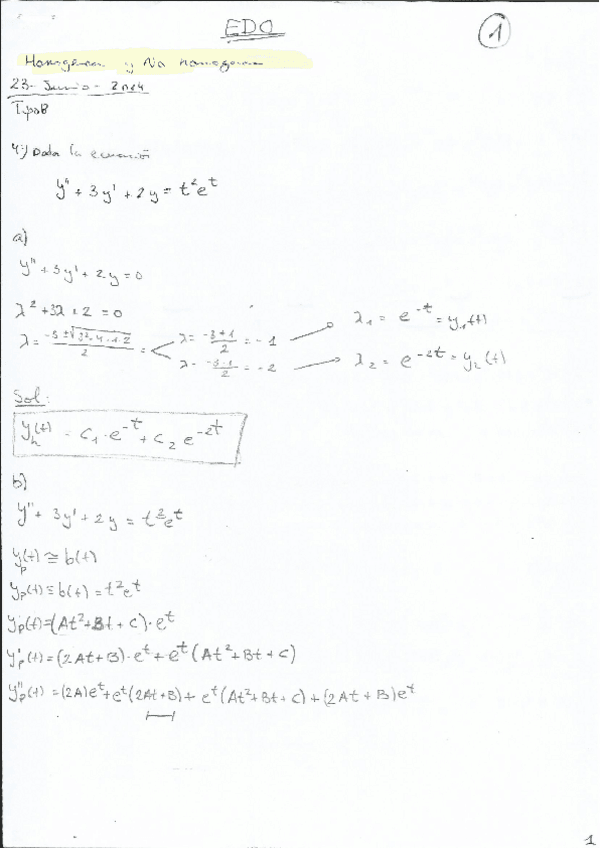 EDO
1
Homogéneas y No homogéneas
23- Junio - 2014
Tipo B
4.) Dada la ecuación
y'' + 3y' + 2y = t²e^t
a)
y'' + 3y' + 2y = 0
λ² + 3λ + 2 = 0
λ = (-3 ± √(3²-4·1·2))/2 = λ = (-3+1)/2 = -1 → λ₁ = e^-t = y₁(t)
λ = (-3-1)/2 = -2 → λ₂ = e^-2t = y₂(t)
Sol:
y_h(t) = C₁·e^-t + C₂ e^-2t
b)
y'' + 3y' + 2y = t²e^t
y_p(t) ≅ b(t)
y_p(t) ≅ b(t) = t²e^t
y_p(t) = (At²+Bt+C)·e^t
y'_p(t) = (2At+B)·e^t + e^t(At²+Bt+C)
y''_p(t) = (2A)e^t + e^t(2At+B) + e^t(At²+Bt+C) + (2At+B)e^t
1